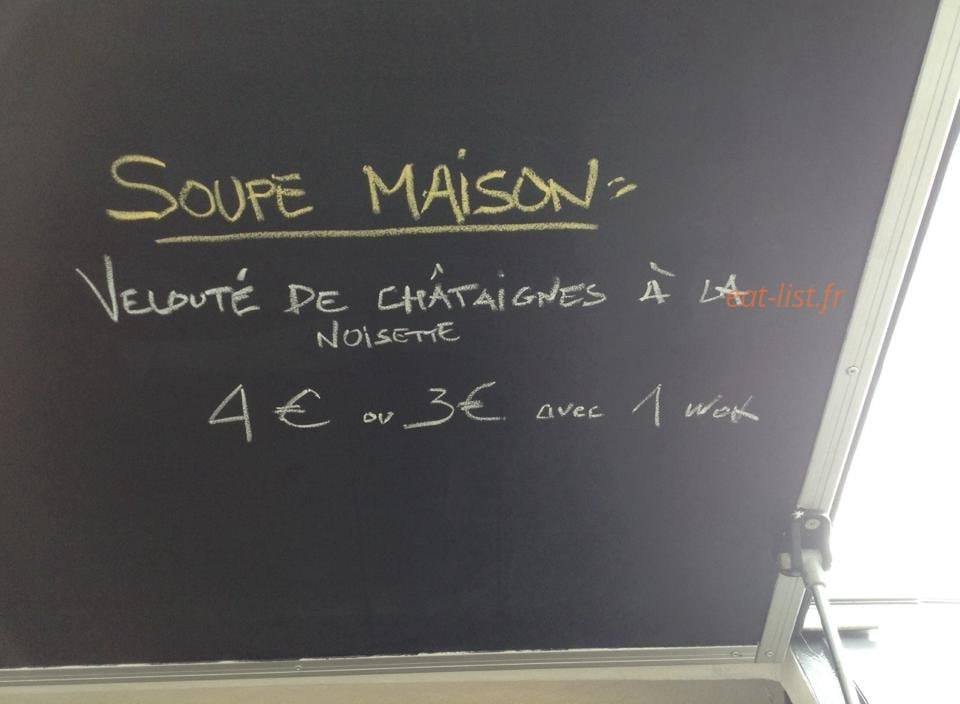 SOUPE MAISON =
VELOUTÉ DE CHÂTAIGNES À LA
NOISETTE
4 € ou 3€ avec 1 wok
eat-list.fr